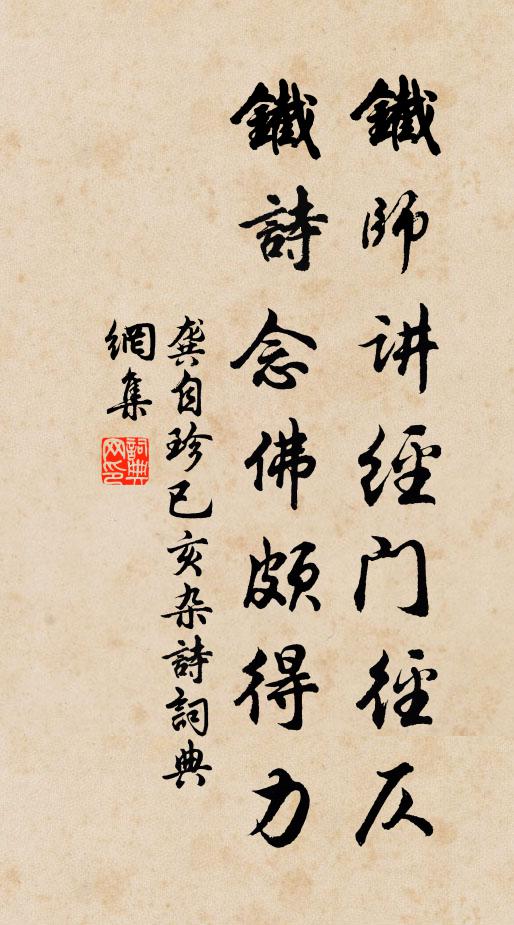 鐵师讲經门徑仄
鐵詩念佛頗得力
龚自珍已亥杂詩詞典
網集
詞典
网印